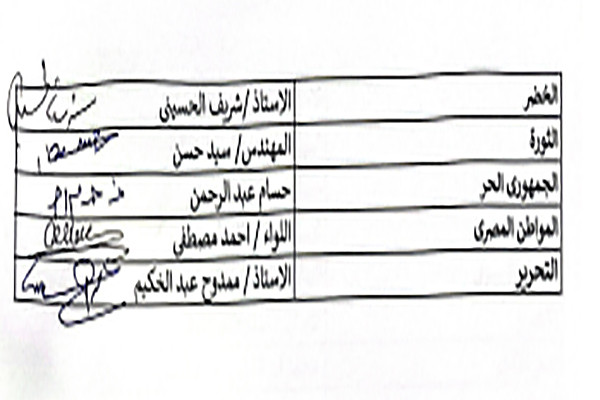 الخضر الاستاذ /شريف الحسينى
الثورة المهندس/ سيد حسن
الجمهورى الحر حسام عبد الرحمن
المواطن المصرى اللواء / احمد مصطفي
التحرير الاستاذ / ممدوح عبد الخكيم